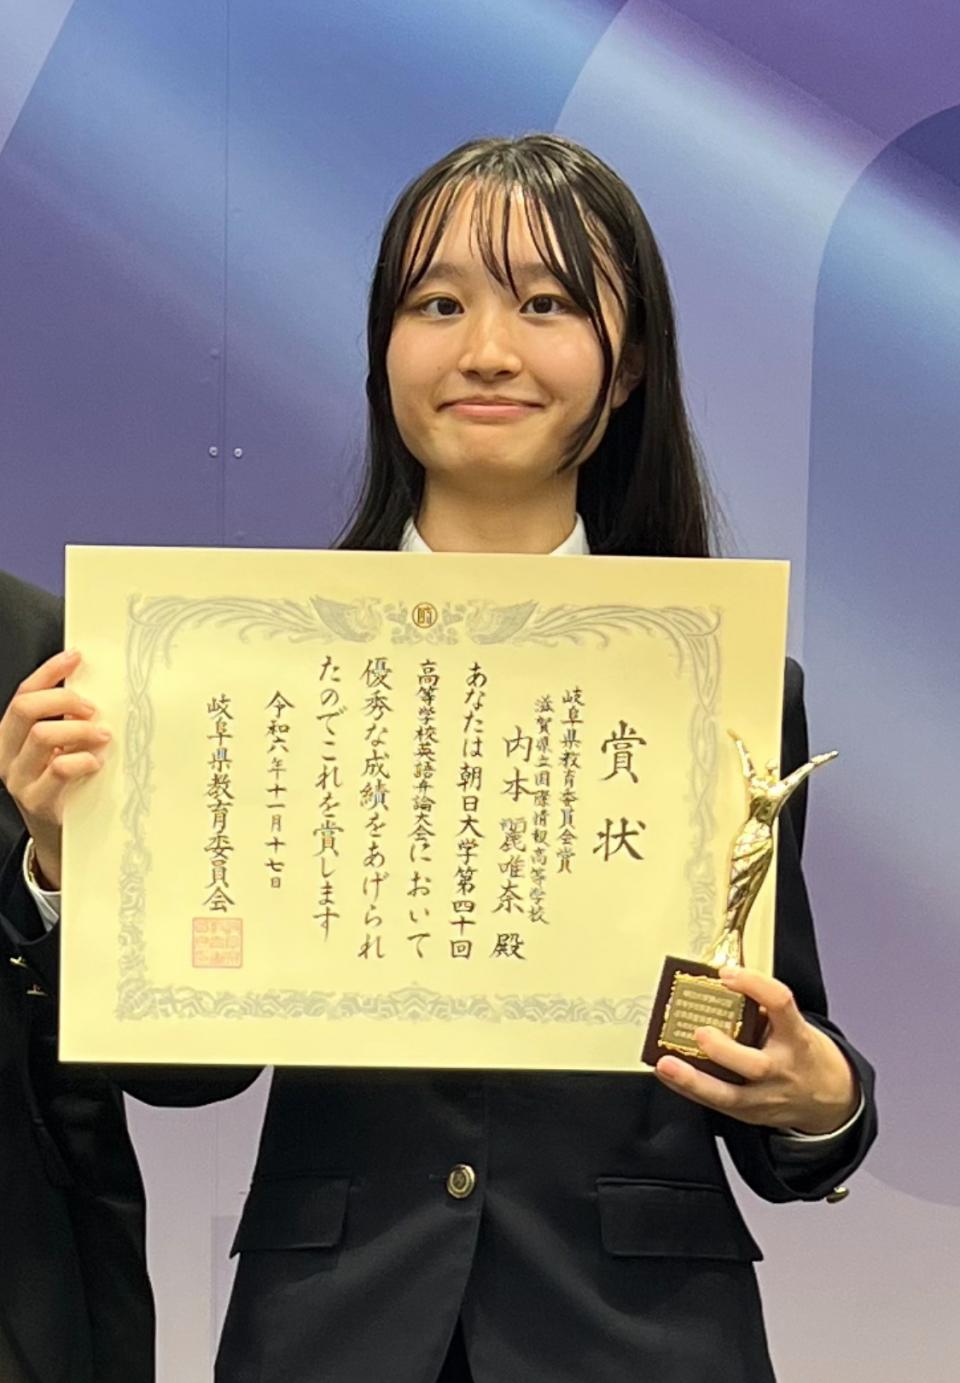 賞状
岐阜県教育委員会賞
滋賀県立国際情報高等学校
内本 麗唯奈 殿
あなたは朝日大学第四十回
高等学校英語弁論大会において
優秀な成績をあげられ
たのでこれを賞します
令和六年十一月十七日
岐阜県教育委員会